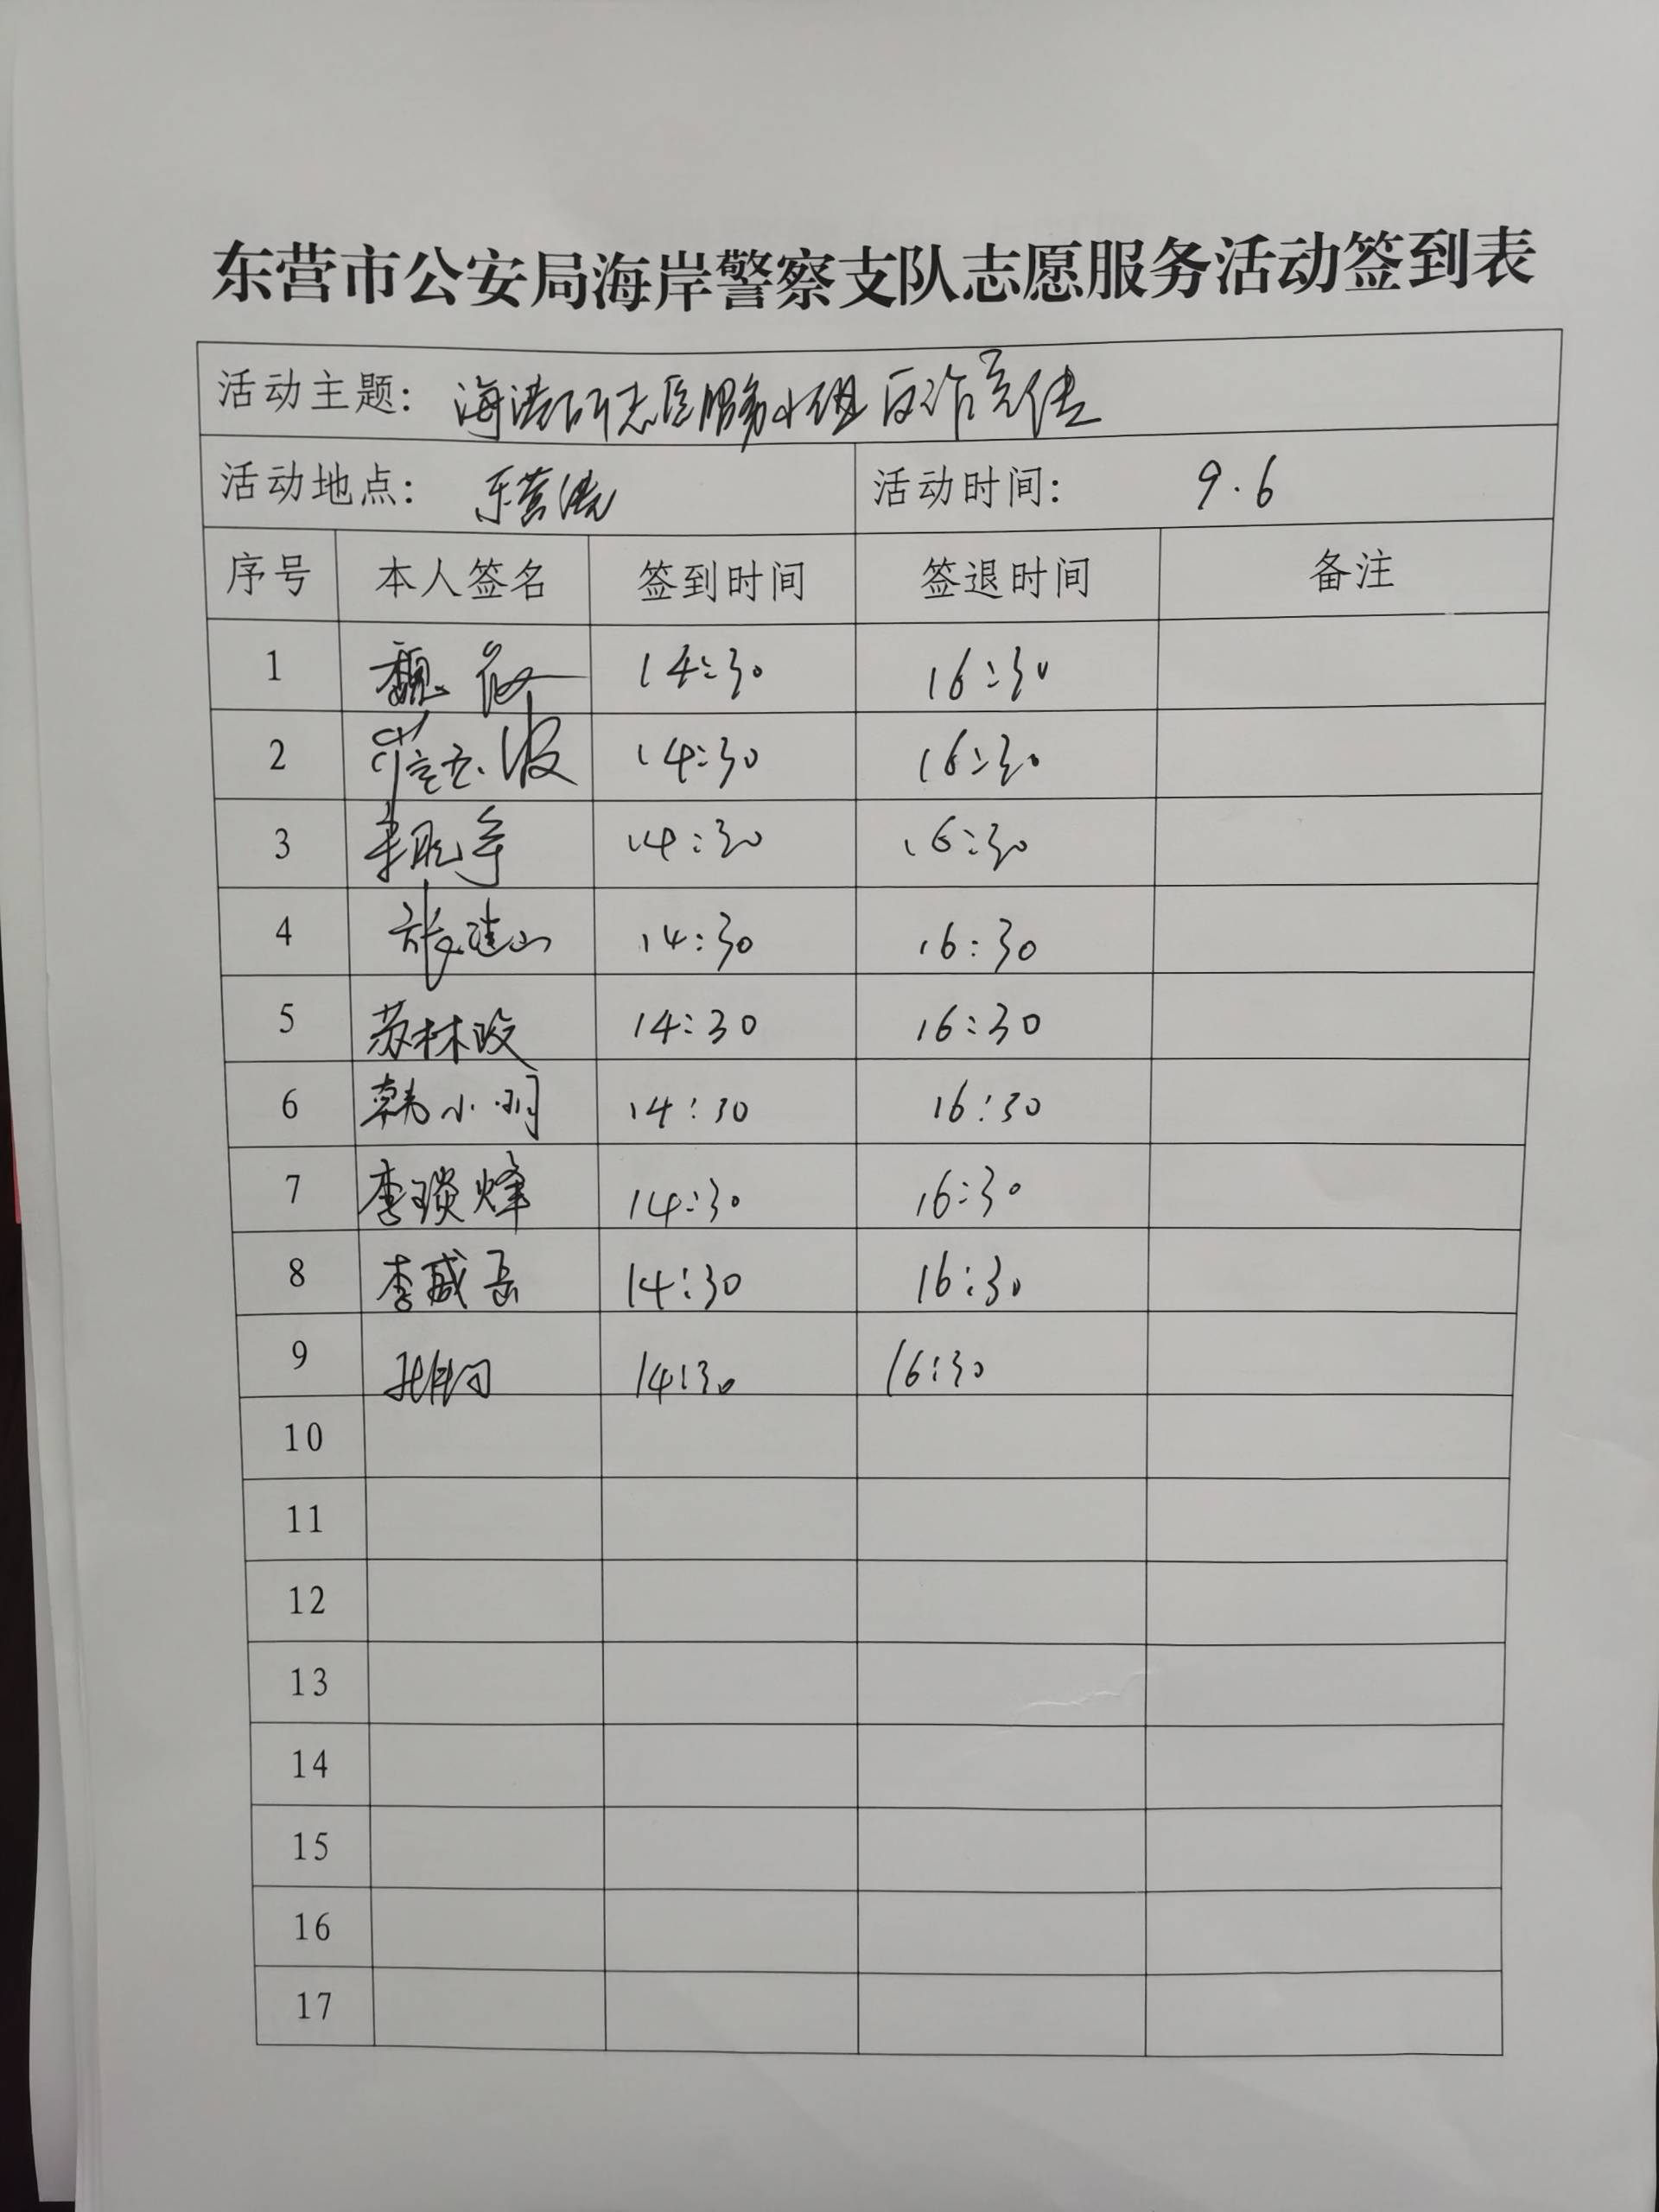 东营市公安局海岸警察支队志愿服务活动签到表
活动主题: 海港所志愿服务小组反诈宣传
活动地点: 东营港 活动时间: 9.6
序号 本人签名 签到时间 签退时间 备注
1 魏 14:30 16:30
2 波 14:30 16:30
3 李 14:30 16:30
4 张建山 14:30 16:30
5 苏林政 14:30 16:30
6 韩小明 14:30 16:30
7 李琰烽 14:30 16:30
8 李威岳 14:30 16:30
9 14:30 16:30
10
11
12
13
14
15
16
17